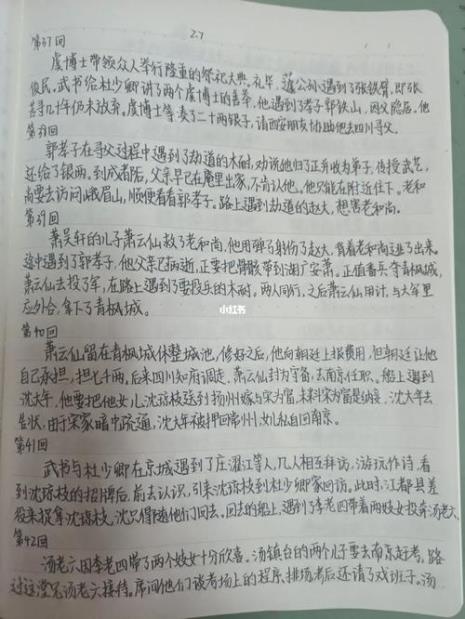 27
第37回
虞博士带领众人举行隆重的祭祀大典。礼毕，蘧公孙遇到了张铁臂，即张
俊民，武书给杜少卿讲了两个虞博士的善举。他遇到了孝子郭铁山，因父隐居，他
苦寻几十年仍未放弃。虞博士等凑了二十两银子，请西安朋友协助他去四川寻父。
第38回
郭孝子在寻父过程中遇到了劫道的木耐，劝说他归了正并收为弟子，传授武艺，
还给了银两。到成都后，父亲早已在庵里出家，不肯认他，他只能在附近住下。老和
尚要去访问峨眉山，顺便看看郭孝子。路上遇到劫道的赵大，想害老和尚。
第39回
萧昊轩的儿子萧云仙救了老和尚，他用弹子射伤了赵大，背着老和尚逃了出来。
途中遇到了郭孝子，他父亲已病逝，正要把骨骸带到湖广安葬。正值番兵夺青枫城，
萧云仙去投了军，在路上遇到了要投兵的木耐。两人同行，之后萧云仙用计，与大军里
应外合，拿下了青枫城。
小红书
第40回
萧云仙留在青枫城休整城池，修好之后，他向朝廷上报费用，但朝廷让他
自己承担，担七千两。后来四川知府调走，萧云仙封为守备，去南京任职。船上遇到
沈大年，他要把他女儿沈琼枝送到扬州嫁与宋为富，未料宋为富是纳妾，沈大年去
告状，由于宋家暗中疏通，沈大年被押回常州，女儿私自回南京。
第41回
武书与杜少卿在京城遇到了庄濯江等人，几人相互拜访，游玩作诗，看
到沈琼枝的招牌后，前去认识，引来沈琼枝到杜少卿家回访。此时，江都县差
役来捉拿沈琼枝，沈只得随他们回去。回去的船上，遇到了李老四带着两妓女投奔汤老六。
第42回
汤老六因李老四带了两个妓女十分欣喜。汤镇台的两个儿子要去南京赶考，路
过这澄兄汤老六接待。席间他们谈考场上的程序、排场考后还请了戏班子。汤